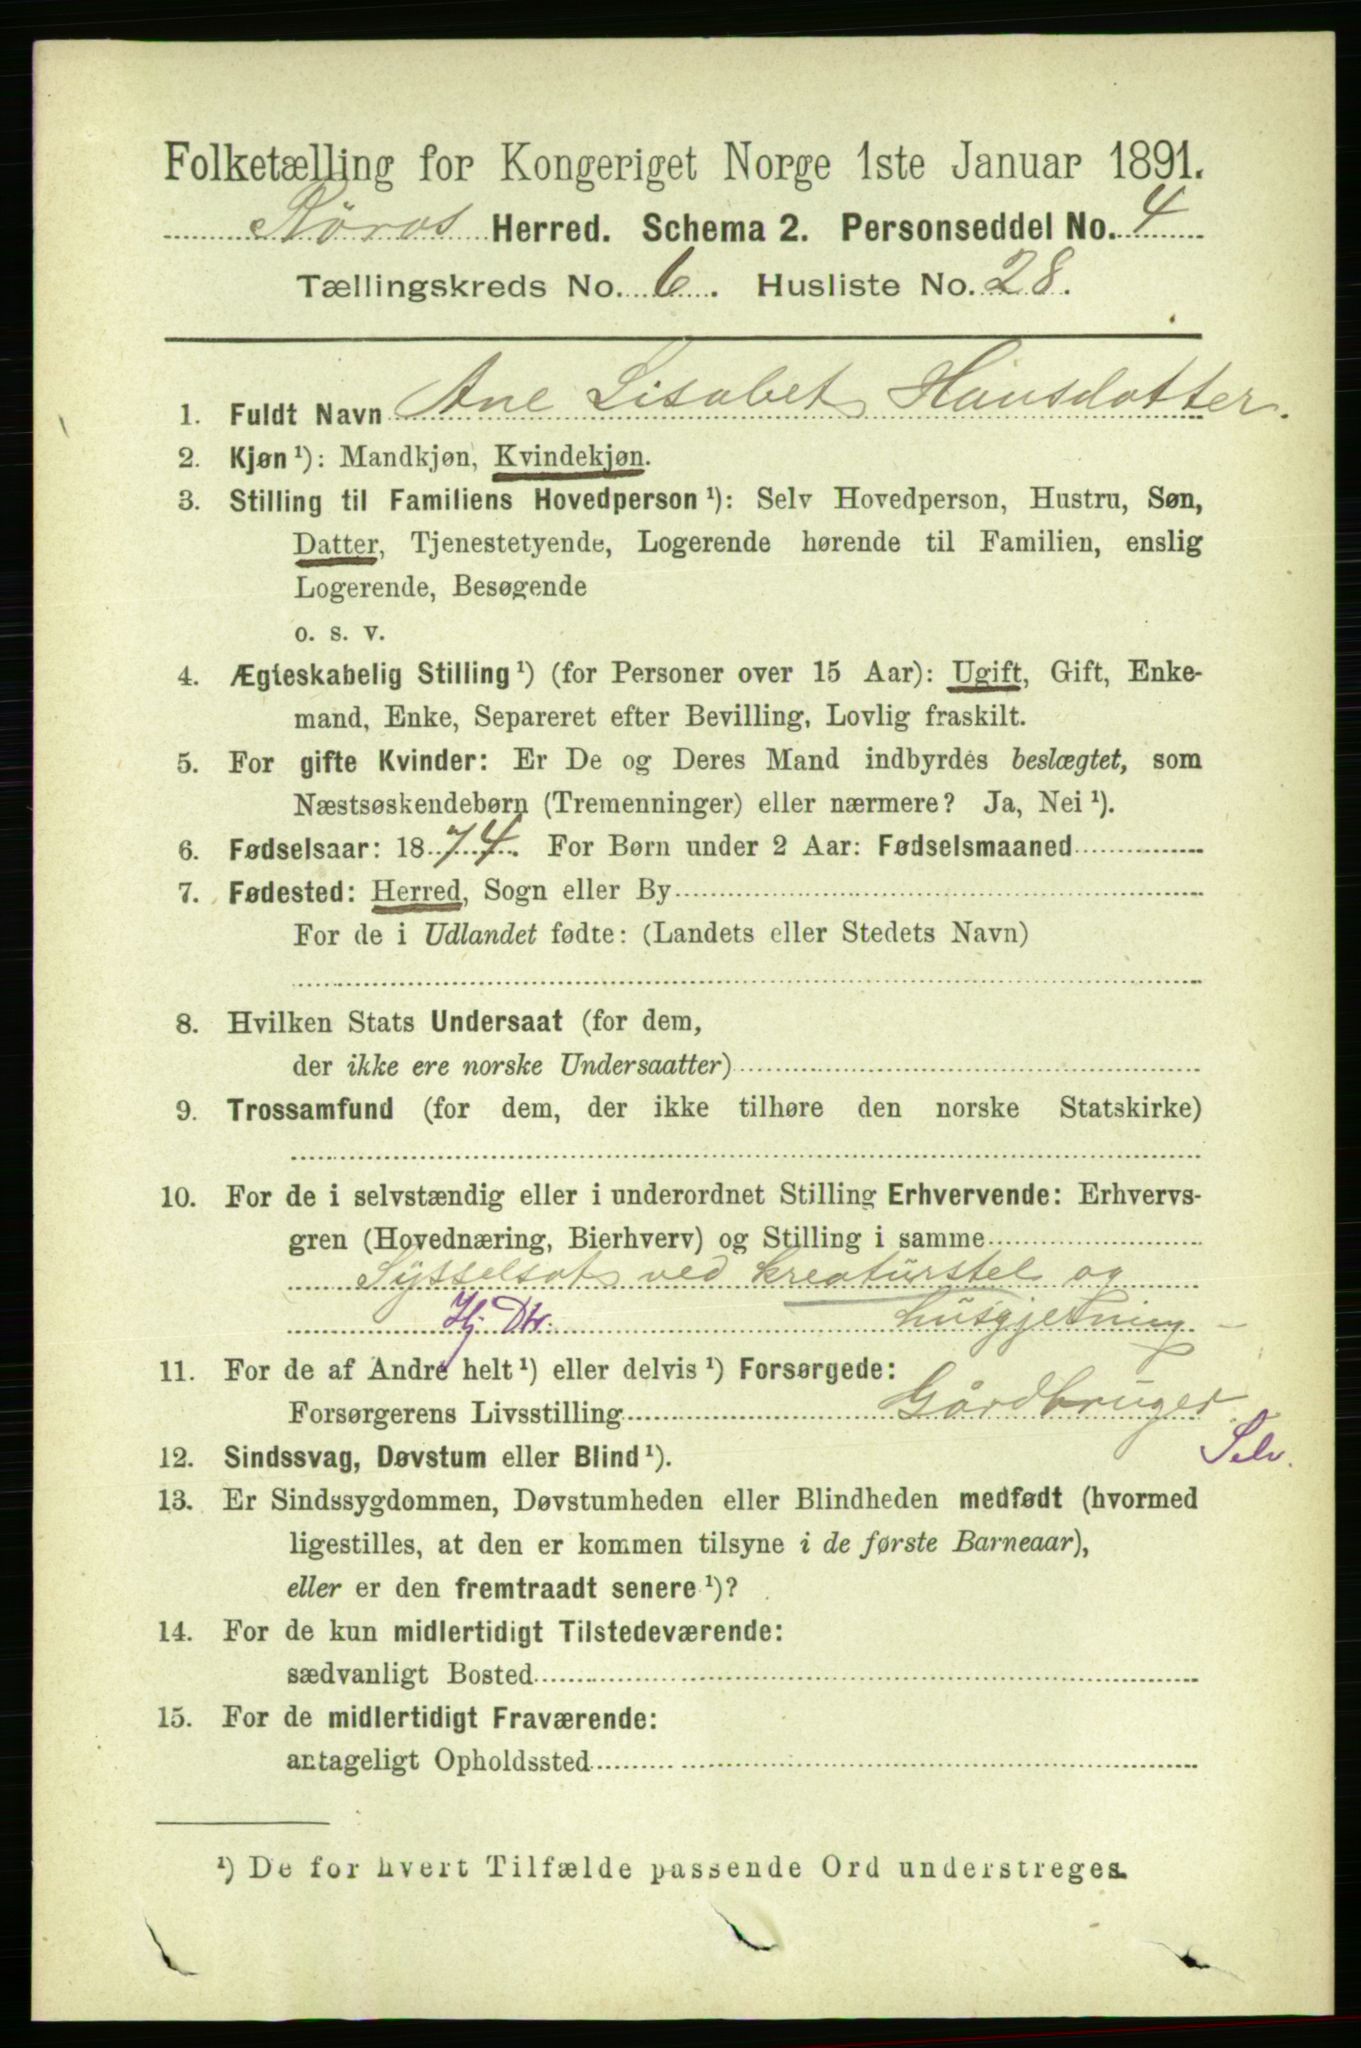 Folketælling for Kongeriget Norge 1ste Januar 1891.
Röros Herred. Schema 2. Personseddel No. 4
Tællingskreds No. 6. Husliste No. 28.
1. Fuldt Navn Ane Lisabet Hansdatter.
2. Kjøn ¹): Mandkjøn, Kvindekjøn.
3. Stilling til Familiens Hovedperson ¹): Selv Hovedperson, Hustru, Søn,
Datter, Tjenestetyende, Logerende hørende til Familien, enslig
Logerende, Besøgende
o. s. v.
4. Ægteskabelig Stilling ¹) (for Personer over 15 Aar): Ugift, Gift, Enke-
mand, Enke, Separeret efter Bevilling, Lovlig fraskilt.
5. For gifte Kvinder: Er De og Deres Mand indbyrdes beslægtet, som
Næstsøskendebørn (Tremenninger) eller nærmere? Ja, Nei ¹).
6. Fødselsaar: 1874. For Børn under 2 Aar: Fødselsmaaned
7. Fødested: Herred, Sogn eller By
For de i Udlandet fødte: (Landets eller Stedets Navn)
8. Hvilken Stats Undersaat (for dem,
der ikke ere norske Undersaatter)
9. Trossamfund (for dem, der ikke tilhøre den norske Statskirke)
10. For de i selvstændig eller i underordnet Stilling Erhvervende: Erhvervs-
gren (Hovednæring, Bierhverv) og Stilling i samme
Sysselsat ved kreaturstel og
Hj. Dtr. husgjerning
11. For de af Andre helt ¹) eller delvis ¹) Forsørgede:
Forsørgerens Livsstilling Gårdbruger
Selv.
12. Sindssvag, Døvstum eller Blind ¹).
13. Er Sindssygdommen, Døvstumheden eller Blindheden medfødt (hvormed
ligestilles, at den er kommen tilsyne i de første Barneaar),
eller er den fremtraadt senere ¹)?
14. For de kun midlertidigt Tilstedeværende:
sædvanligt Bosted
15. For de midlertidigt Fraværende:
antageligt Opholdssted
¹) De for hvert Tilfælde passende Ord understreges.